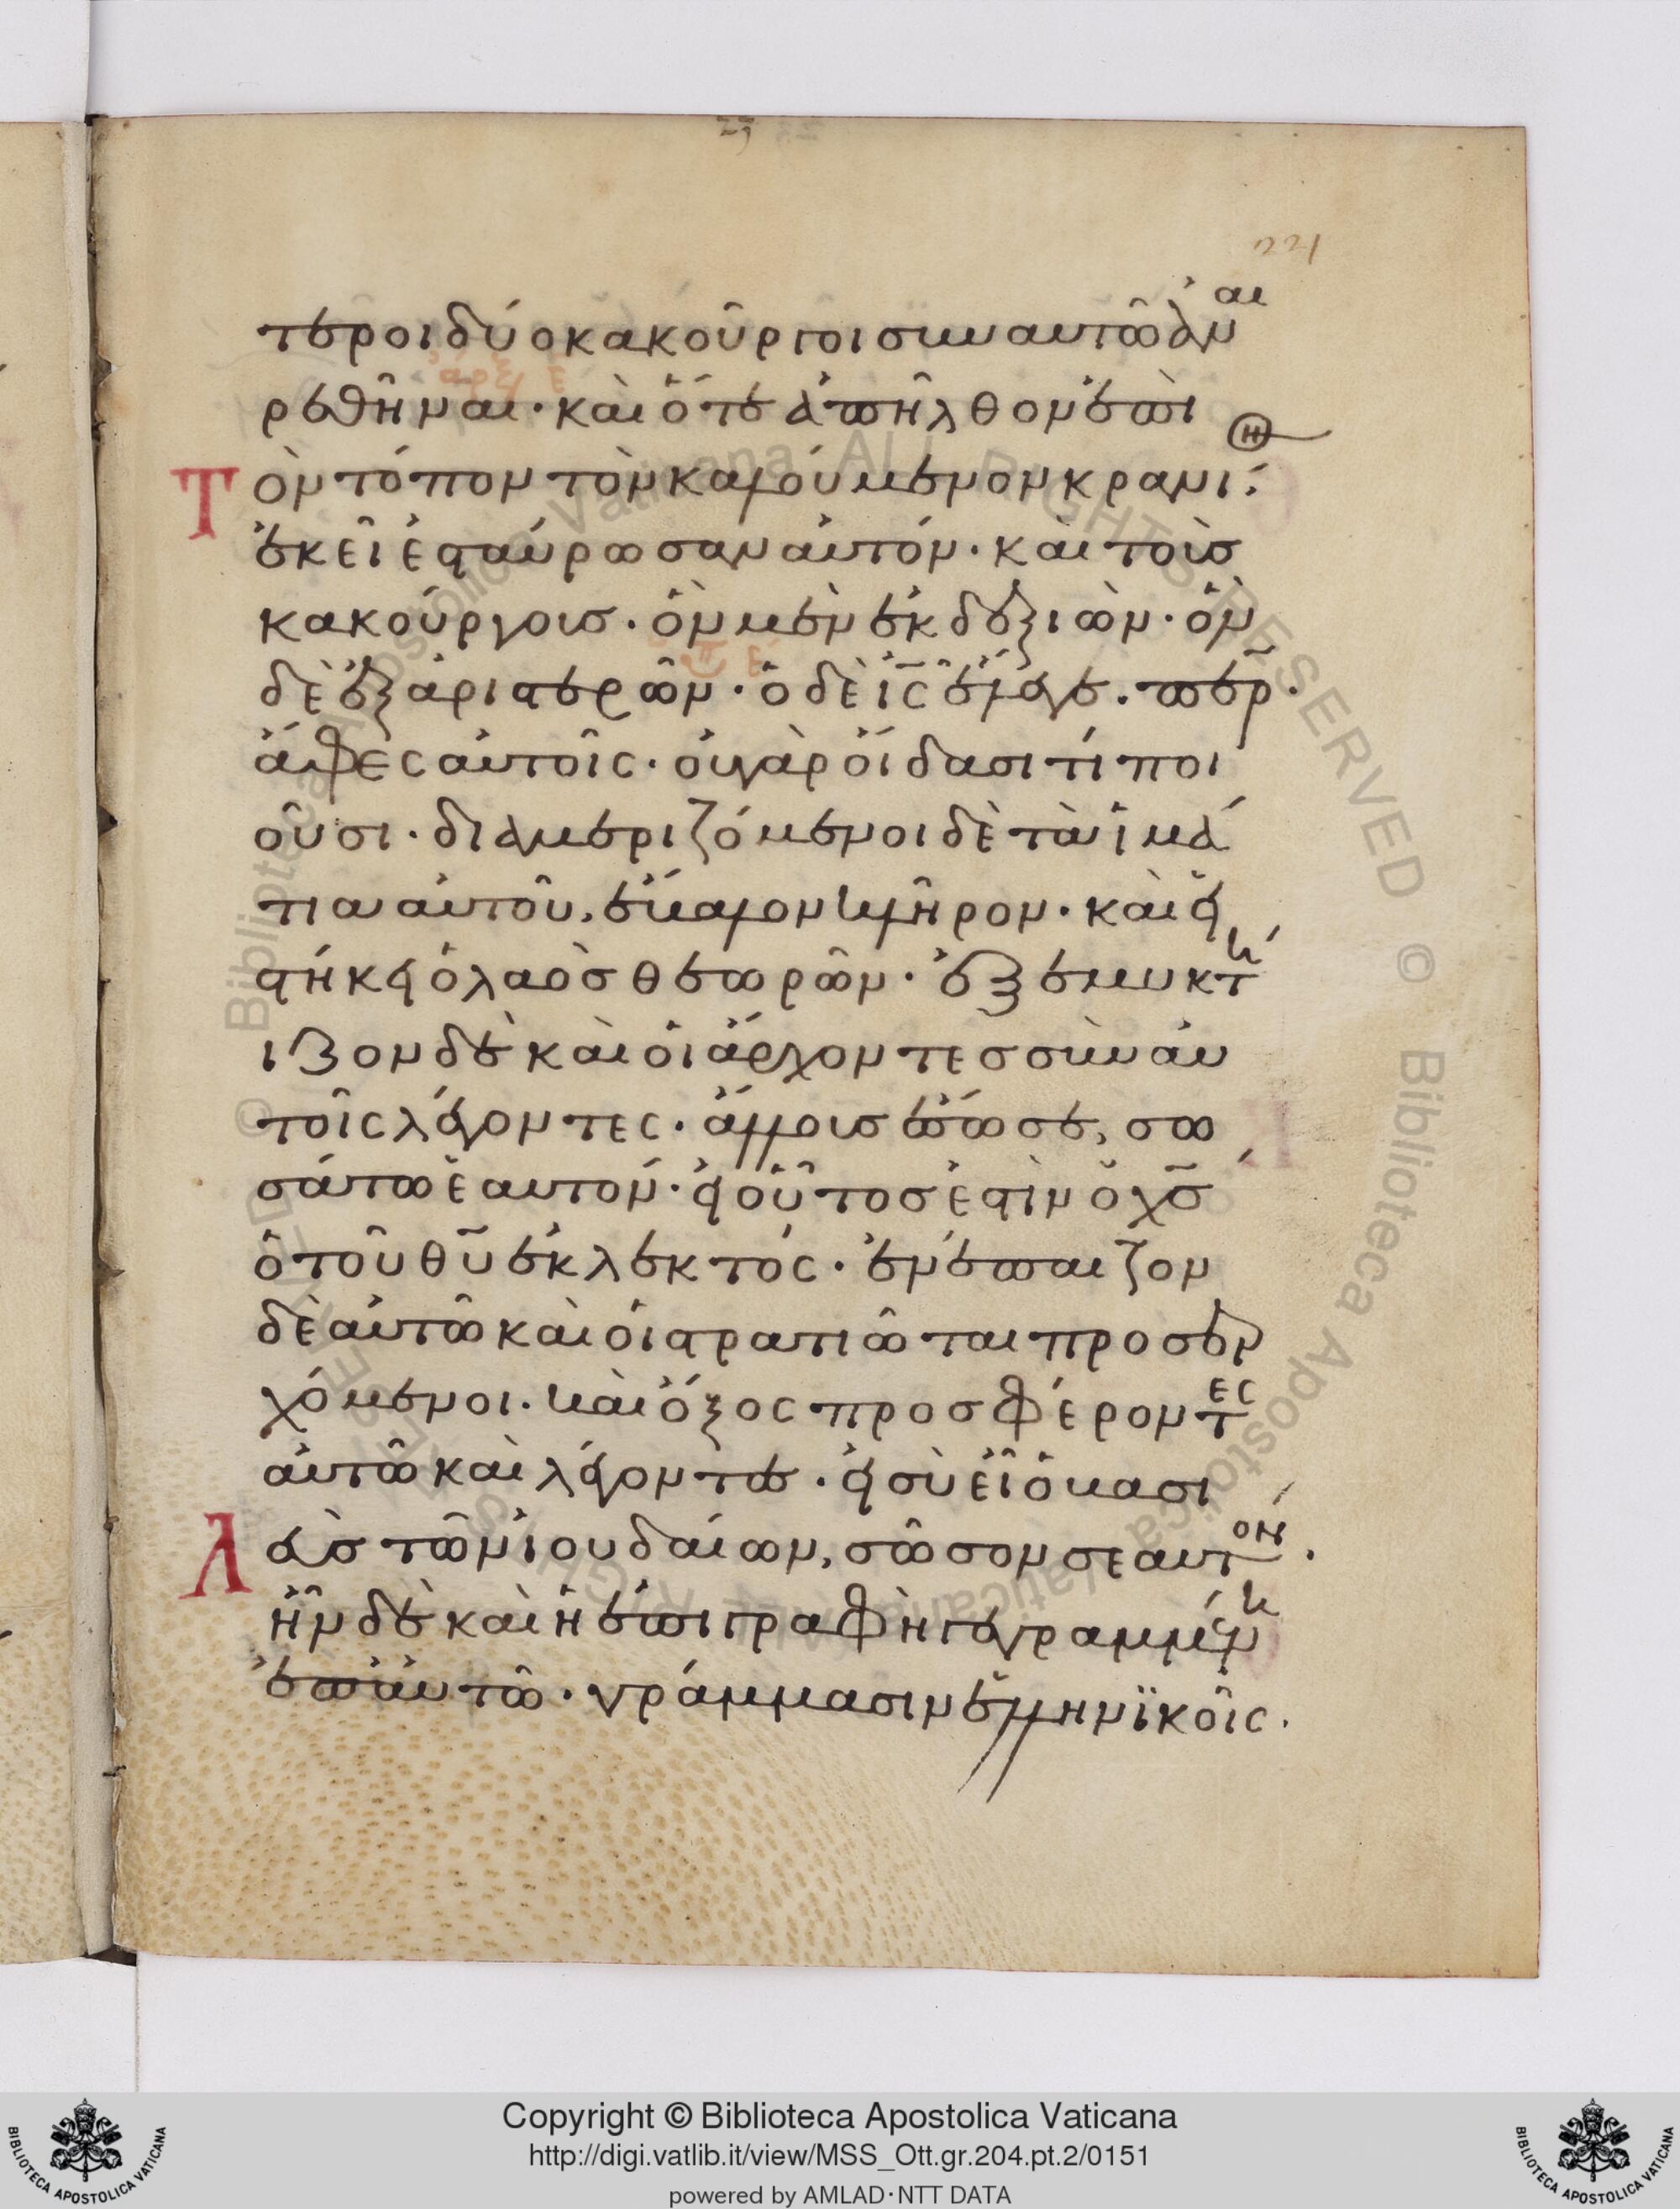 221
τεροι δύο κακοῦργοι συν αυτῶ ἀναι
ρεθῆναι· καὶ ὅτε ἀπῆλθον ἐπὶ
Τὸν τόπον τὸν καλούμενον κρανί·
ἐκεῖ ἐσταύρωσαν ἀυτόν· καὶ τοὺσ
κακούργουσ· ὃν μὲν ἐκ δεξιῶν· ὃν
δὲ ἐξ ἀριστερῶν· ὁ δὲ ἰς ἔλεγε. περ·
ἄφες ἀυτοῖς· ὀυ γὰρ ὄιδασι τί ποι
οῦσι· διαμεριζόμενοι δὲ τὰ ἱμά
τια αυτοῦ, ἔβαλον κλῆρον· καὶ εἱ
στήκει ὁ λαὸσ θεωρῶν· ἐξεμυκτή
ιζον δὲ καὶ ὁι ἄρχοντεσ σὺν ἀυ
τοῖς λέγοντες· ἄλλουσ ἔσωσε, σω
σάτω ἑαυτον· ἐι οὗτοσ ἐστὶν ὁ χσ
ὁ τοῦ θυ ἐκλεκτός· ἐνέπαιζον
δὲ ἀυτῶ καὶ ὁι στρατιῶται προσερ
χόμενοι· καὶ ὄξος προσφέροντες
ἀυτῶ καὶ λέγοντεσ· ἐι σὺ εἶ ὁ βασι
λεὺσ τῶν ἰουδαίων, σῶσον σεαυτον·
ἦν δὲ καὶ ἡ ἐπιγραφὴ γεγραμμένη
ἐπ' ἀυτῶ· γράμμασιν ἑλληνϊκοῖς·
© Biblioteca Apostolica Vaticana ALL RIGHTS RESERVED
Copyright © Biblioteca Apostolica Vaticana
http://digi.vatlib.it/view/MSS_Ott.gr.204.pt.2/0151
powered by AMLAD·NTT DATA
BIBLIOTECA APOSTOLICA VATICANA
BIBLIOTECA APOSTOLICA VATICANA